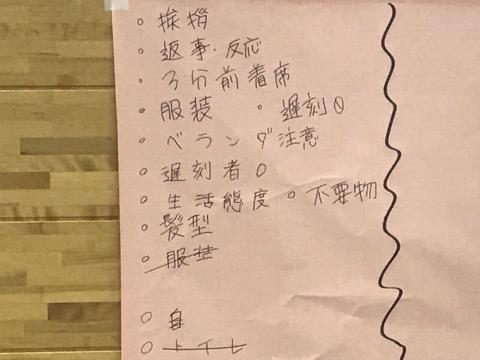 ○ 挨拶
○ 返事・反応
○ 3分前着席
○ 服装 ○ 遅刻0
○ ベランダ注意
○ 遅刻者0
○ 生活態度 ○ 不要物
○ 髪型
○ 服装
○ 自
○ トイレ